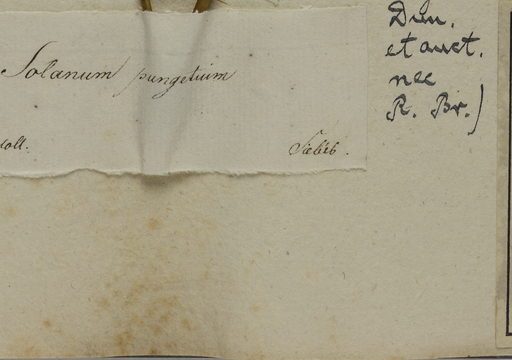 Solanum pungetium
coll.
Siebb.
Dun.
et auct.
nec
R. Br.)